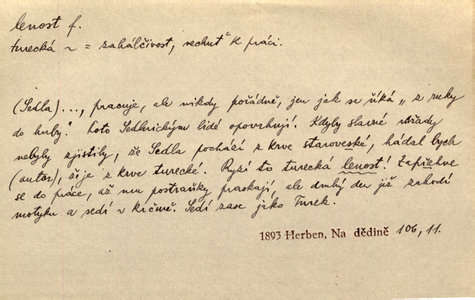 lenost f.
turecká ~ = zahálčivost, nechuť k práci.
(Sedla)..., pracuje, ale nikdy pořádně, jen jak se říká „z ruky
do huby. Toto Sedlnickým lidé opovrhují. Kdyby slavné úřady
nebyly zjistily, že Sedla pochází z krve staroveské, hádal bych
(autor), že je z krve turecké. Ryzí to turecká lenost! Zapřáhne
se do práce, až mu postraňky praskají, ale druhý den již zahodí
motyku a sedí v krčmě. Sedí zase jako Turek.
1893 Herben, Na dědině 106, 11.